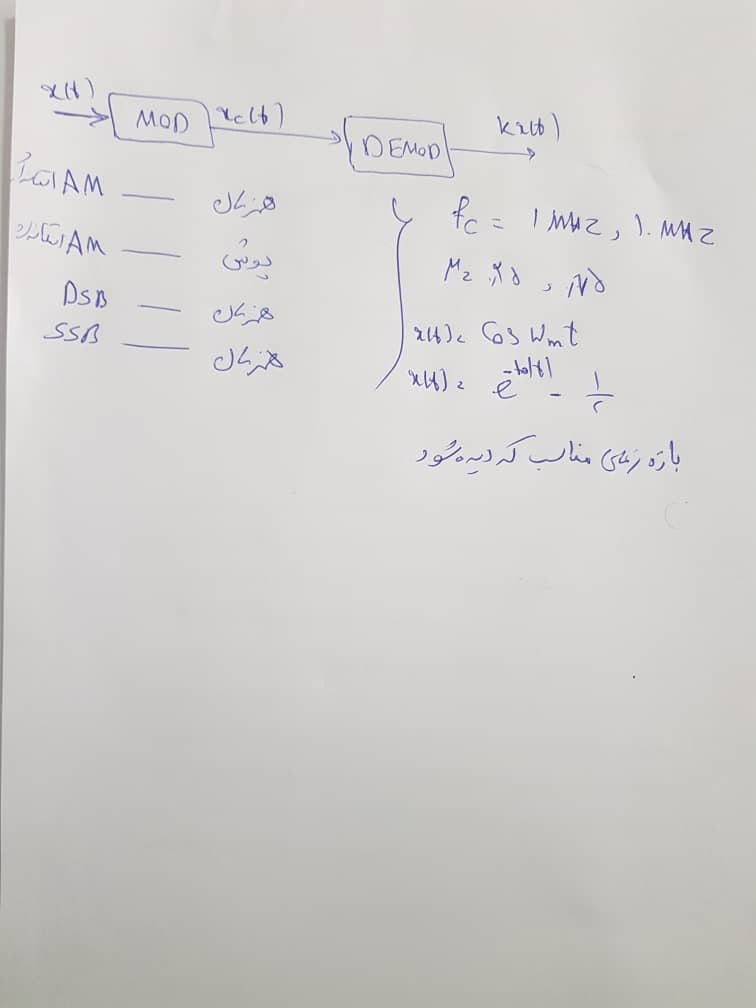 x(t) MOD xc(t) DEMOD kx(t)
AM — همزمان
AM استاندارد — پوش
DSB — همزمان
SSB — همزمان
fc = 1 MHz , 10 MHz
x(t) = Cos Wmt
x(t) = e - 1/2
بازه زمانی مناسب که دیده شود